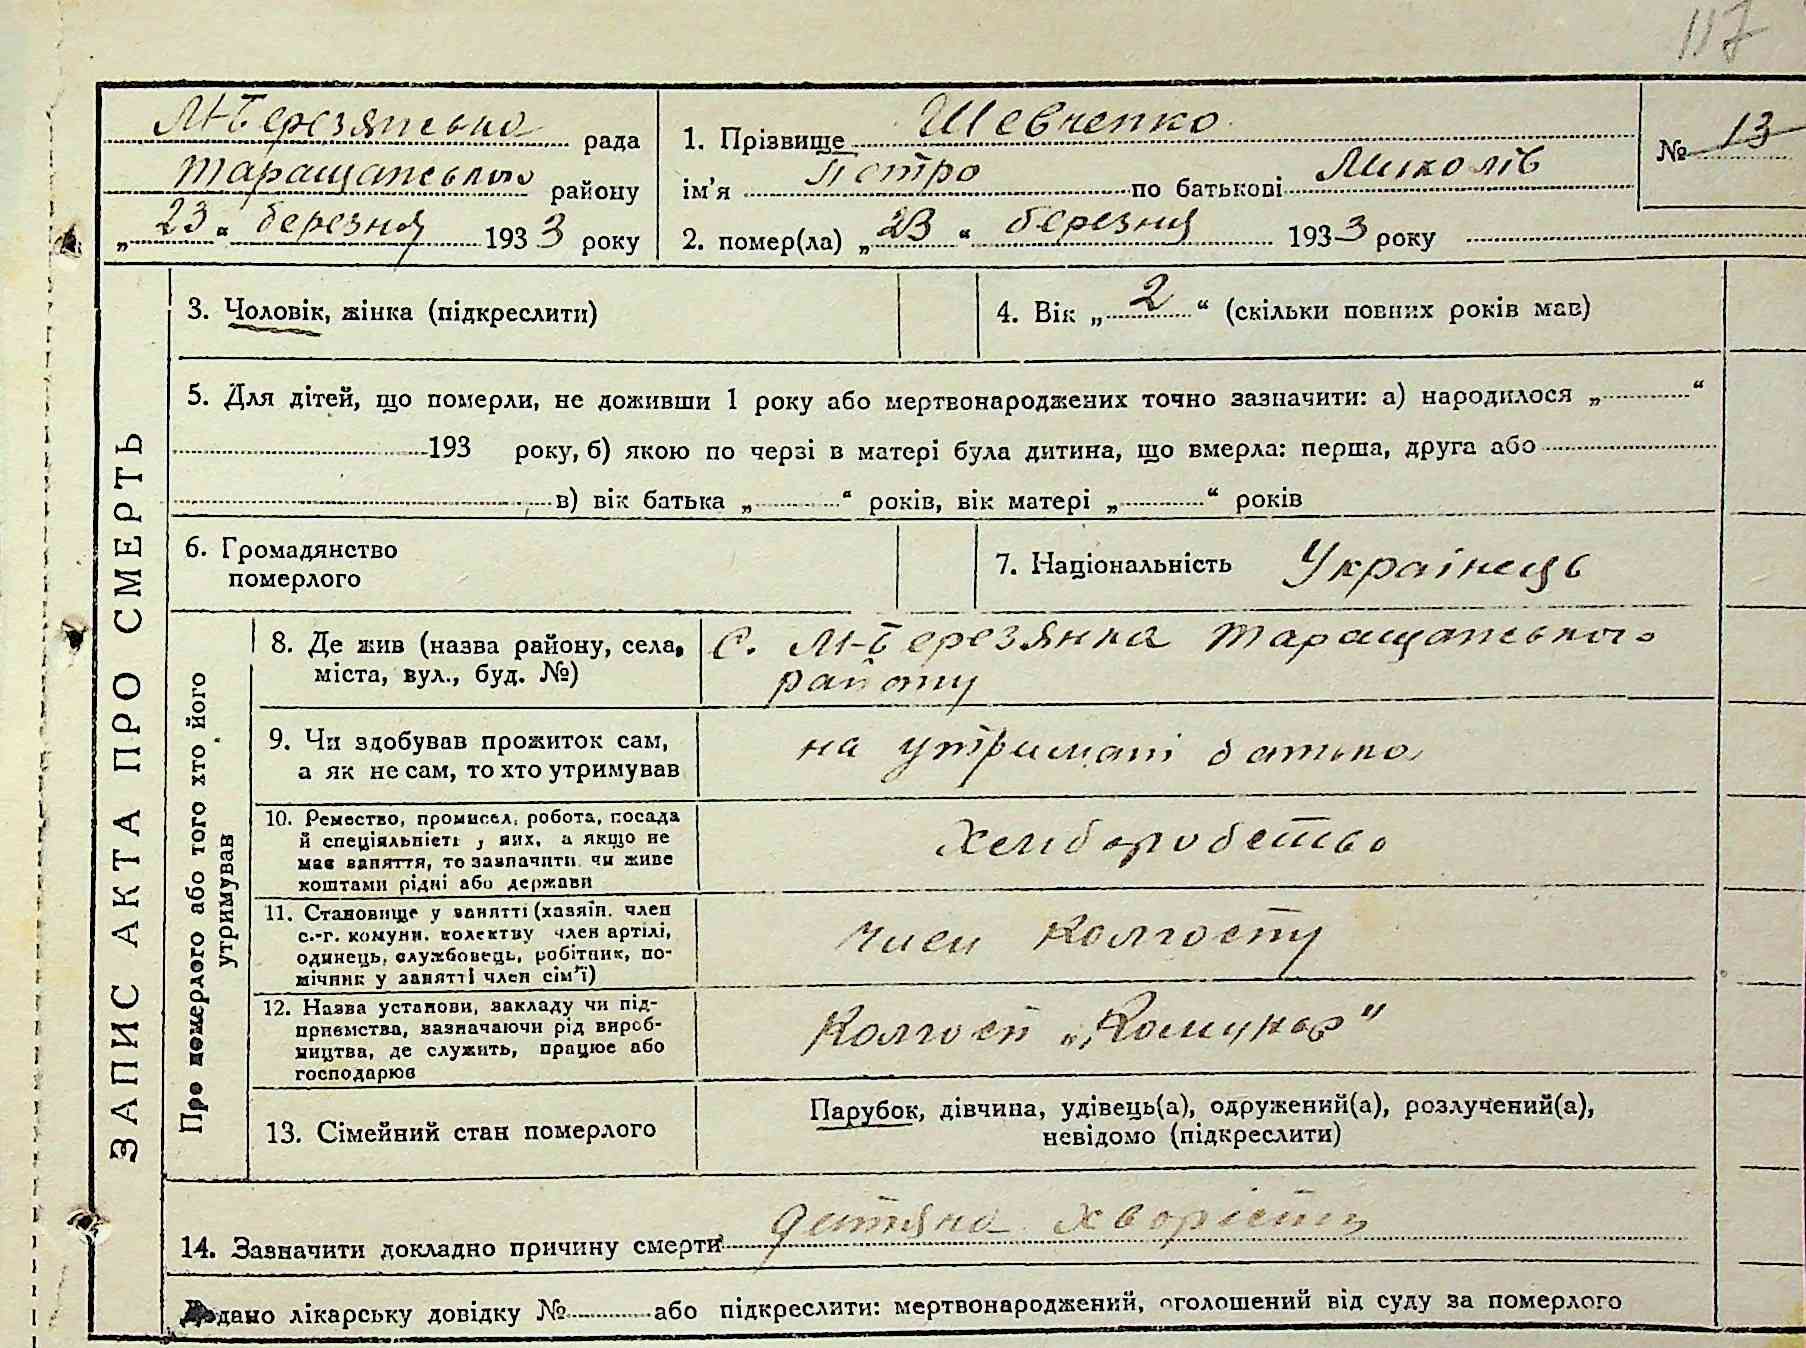 117
М-Березянська рада
Таращанського району
„23“ березня 1933 року
1. Прізвище Шевченко
ім’я Петро по батькові Миколів
№ 13
2. помер(ла) „23“ березня 1933 року
ЗАПИС АКТА ПРО СМЕРТЬ
3. Чоловік, жінка (підкреслити)
4. Вік „2“ (скільки повних років мав)
5. Для дітей, що померли, не доживши 1 року або мертвонароджених точно зазначити: а) народилося „ “
193 року, б) якою по черзі в матері була дитина, що вмерла: перша, друга або
в) вік батька „ “ років, вік матері „ “ років
6. Громадянство
померлого
7. Національність Українець
Про померлого або того хто його
утримував
8. Де жив (назва району, села,
міста, вул., буд. №)
с. М-Березянка Таращанського
району
9. Чи здобував прожиток сам,
а як не сам, то хто утримував
на утримані батька
10. Ремество, промисел, робота, посада
й спеціяльність у них, а якщо не
має заняття, то зазначити чи живе
коштами рідні або держави
Хліборобство
11. Становище у занятті (хазяїн, член
с.-г. комуни, колектву член артілі,
одинець, службовець, робітник, по-
мічник у занятті член сім’ї)
член колгоспу
12. Назва установи, закладу чи під-
приємства, зазначаючи рід вироб-
ництва, де служить, працює або
господарює
Колгосп „Комунар“
13. Сімейний стан померлого
Парубок, дівчина, удівець(а), одружений(а), розлучений(а),
невідомо (підкреслити)
14. Зазначити докладно причину смерти дитяча хворість
Додано лікарську довідку № або підкреслити: мертвонароджений, оголошений від суду за померлого